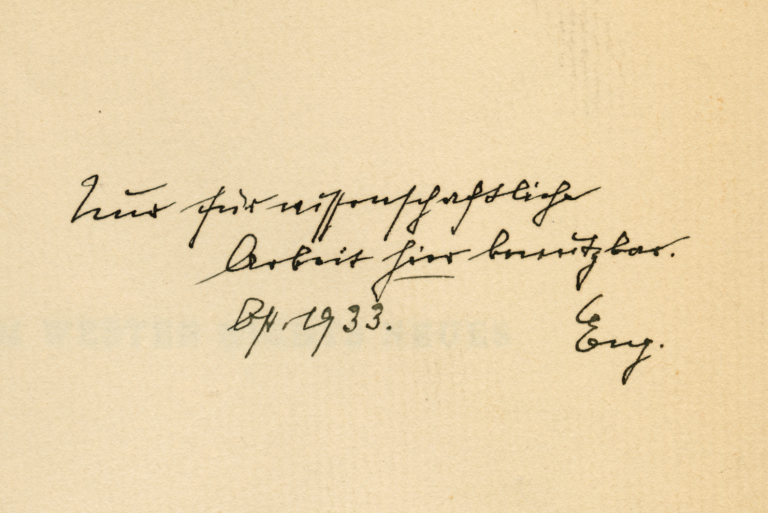 Nur für wissenschaftliche
Arbeit hier benutzbar.
1933. Eng.